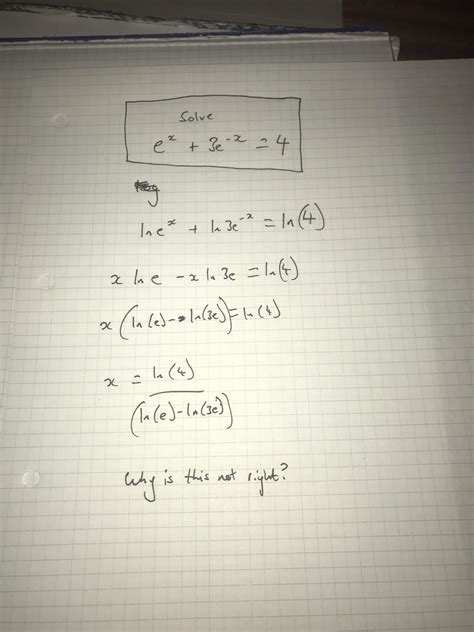 Solve
eˣ + 3e⁻ˣ = 4
ln eˣ + ln 3e⁻ˣ = ln(4)
x ln e - x ln 3e = ln(4)
x (ln(e) - ln(3e)) = ln(4)
x = ln(4)
(ln(e) - ln(3e))
Why is this not right?